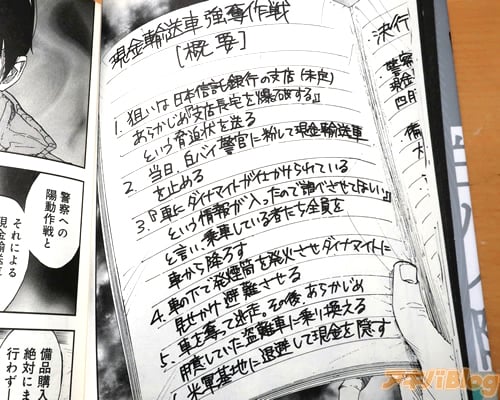 現金輸送車強奪作戦
[概要]
1. 狙いは日本信託銀行の支店(未定)
あらかじめ『支店長宅を爆破する』
という脅迫状を送る
2. 当日、白バイ警官に扮して現金輸送車
を止める
3.『車にダイナマイトが仕かけられている
という情報が入ったので調べさせてほしい』
と言い、乗車している者たち全員を
車から降ろす
4. 車の下で発煙筒を発火させダイナマイトに
見せかけ避難させる
5. 車を奪って逃走。その後、あらかじめ
用意していた盗難車に乗り換える
米軍基地に退避して現金を隠す
決行
警察
現金
四月
備
大
警察への
陽動作戦と
それによる
現金輸送
備品購入
絶対にま
行わず
アキバBlog